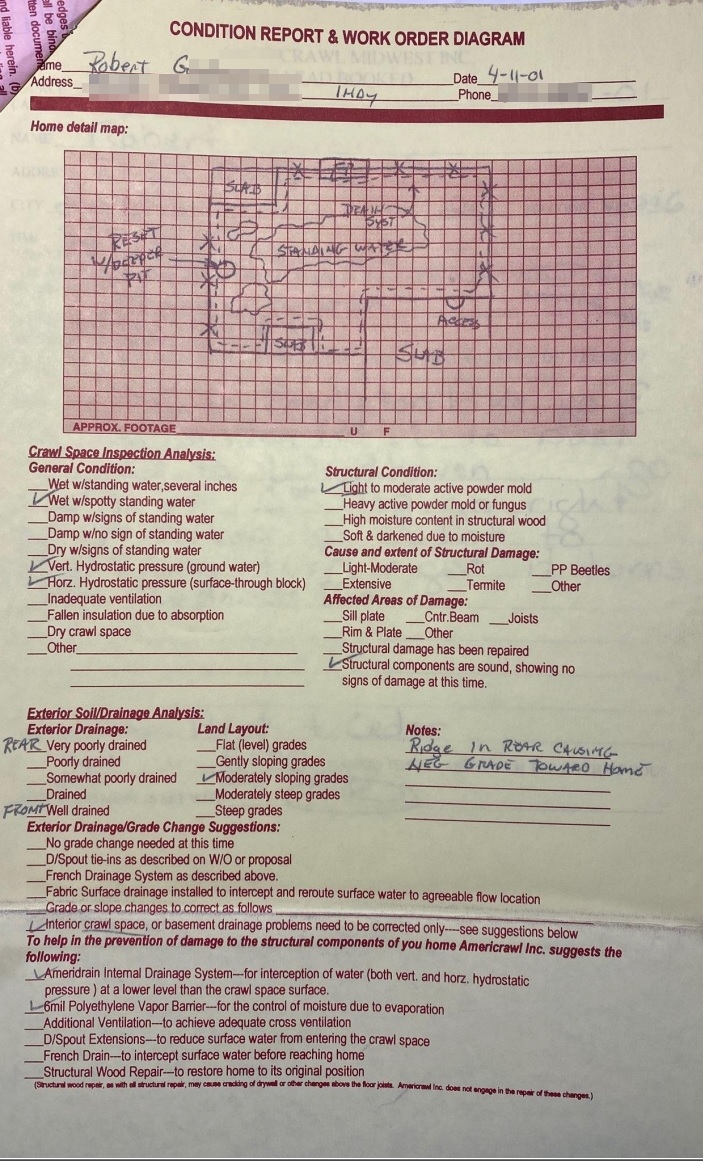 CONDITION REPORT & WORK ORDER DIAGRAM
ame Robert G
Date 4-11-01
Address INDY Phone
Home detail map:
SLAB FP
DRAIN
SYST
RESET
W/DEEPER
PIT
STANDING WATER
ACCESS
SLAB
SLAB
APPROX. FOOTAGE U F
Crawl Space Inspection Analysis:
General Condition:
Wet w/standing water,several inches
Wet w/spotty standing water
Damp w/signs of standing water
Damp w/no sign of standing water
Dry w/signs of standing water
Vert. Hydrostatic pressure (ground water)
Horz. Hydrostatic pressure (surface-through block)
Inadequate ventilation
Fallen insulation due to absorption
Dry crawl space
Other
Structural Condition:
Light to moderate active powder mold
Heavy active powder mold or fungus
High moisture content in structural wood
Soft & darkened due to moisture
Cause and extent of Structural Damage:
Light-Moderate Rot PP Beetles
Extensive Termite Other
Affected Areas of Damage:
Sill plate Cntr.Beam Joists
Rim & Plate Other
Structural damage has been repaired
Structural components are sound, showing no
signs of damage at this time.
Exterior Soil/Drainage Analysis:
Exterior Drainage:
REAR Very poorly drained
Poorly drained
Somewhat poorly drained
Drained
FRONT Well drained
Land Layout:
Flat (level) grades
Gently sloping grades
Moderately sloping grades
Moderately steep grades
Steep grades
Notes:
Ridge in REAR CAUSING
NEG GRADE TOWARD HOME
Exterior Drainage/Grade Change Suggestions:
No grade change needed at this time
D/Spout tie-ins as described on W/O or proposal
French Drainage System as described above.
Fabric Surface drainage installed to intercept and reroute surface water to agreeable flow location
Grade or slope changes to correct as follows
Interior crawl space, or basement drainage problems need to be corrected only----see suggestions below
To help in the prevention of damage to the structural components of you home Americrawl Inc. suggests the
following:
Ameridrain Internal Drainage System---for interception of water (both vert. and horz. hydrostatic
pressure ) at a lower level than the crawl space surface.
6mil Polyethylene Vapor Barrier---for the control of moisture due to evaporation
Additional Ventilation---to achieve adequate cross ventilation
D/Spout Extensions---to reduce surface water from entering the crawl space
French Drain---to intercept surface water before reaching home
Structural Wood Repair---to restore home to its original position
(Structural wood repair, as with all structural repair, may cause cracking of drywall or other changes above the floor joists. Americrawl Inc. does not engage in the repair of these changes.)